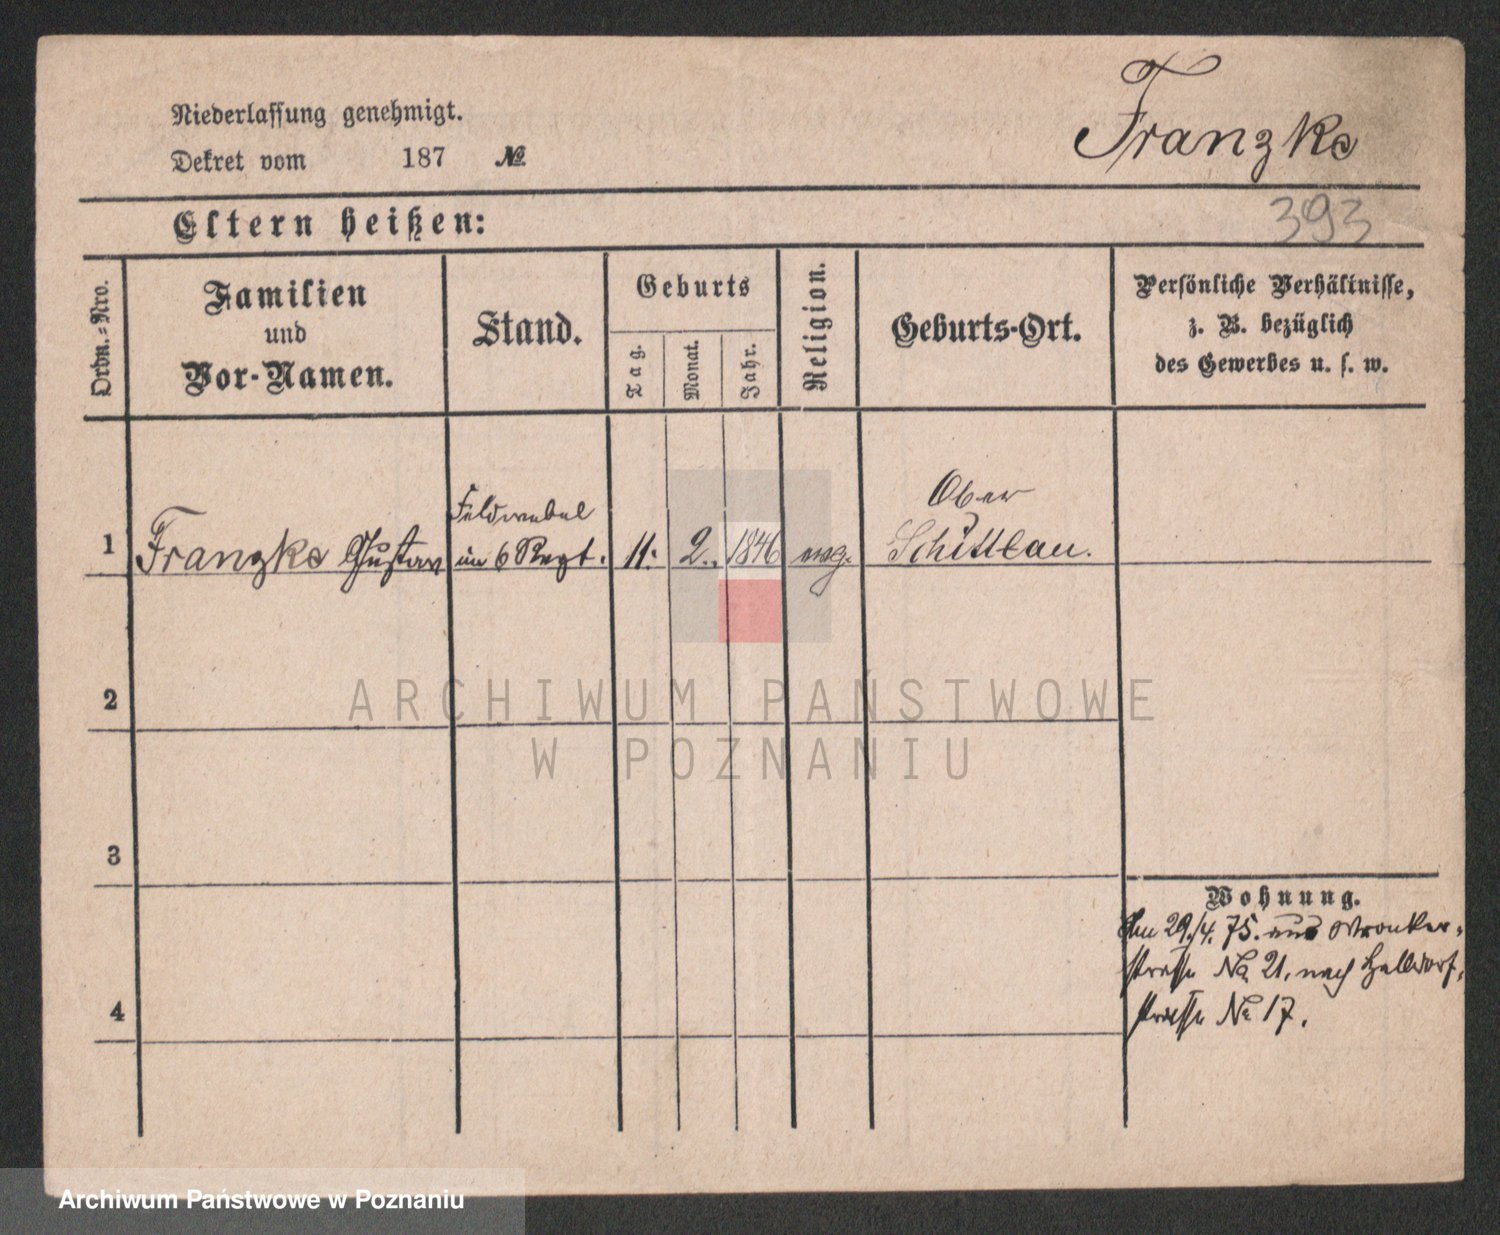 Niederlassung genehmigt.
Franzke
Dekret vom 187 №
393
Eltern heißen:
Ordn.-Nro.
Familien
und
Vor-Namen.
Stand.
Geburts
Tag.
Monat.
Jahr.
Religion.
Geburts-Ort.
Persönliche Verhältnisse,
z. B. bezüglich
des Gewerbes u. s. w.
1
Franzke Gustav
Feldwebel
im 6 Regt.
11.
2.
1846
evg.
Ober
Schüttlau.
2
ARCHIWUM PAŃSTWOWE
W POZNANIU
3
Wohnung.
Am 29./4. 75. aus Wronker-
strasse No 21, nach Halldorf-
strasse No 17.
4
Archiwum Państwowe w Poznaniu